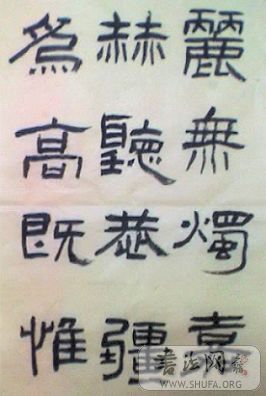 麗無燭袁
赫聽恭疆
為高既惟
书法网
WWW.SHUFA.ORG